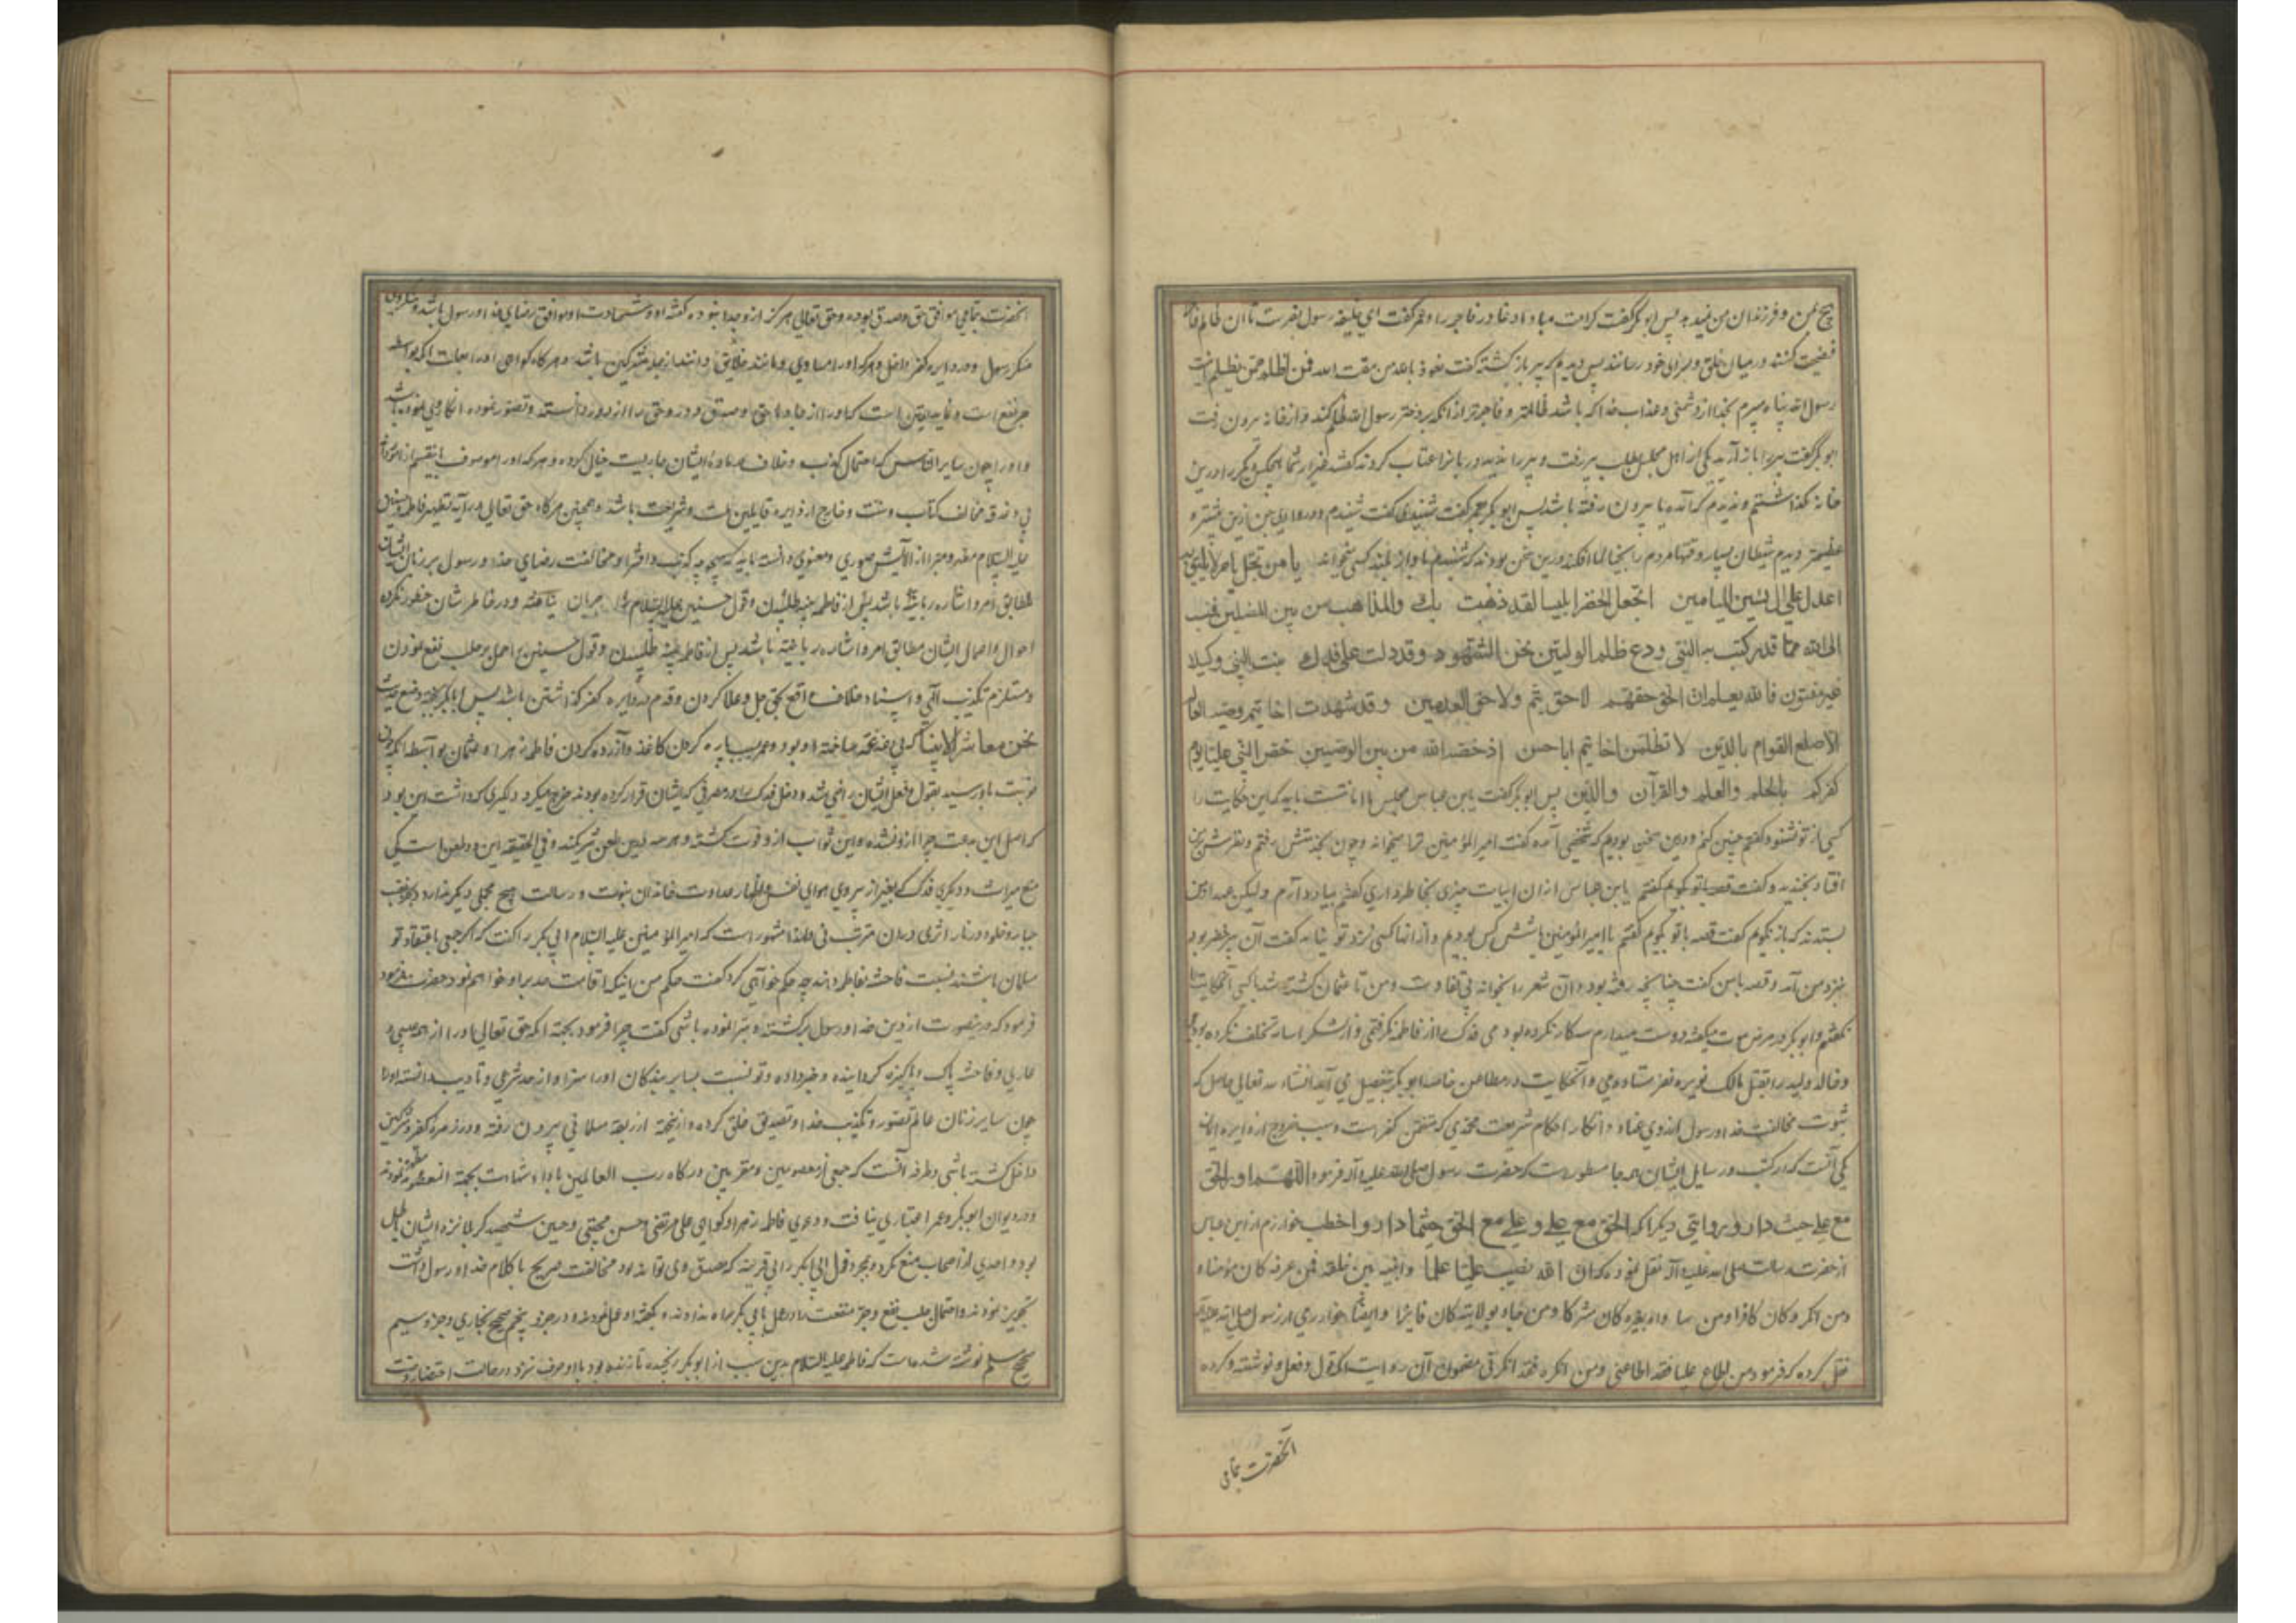 هیچ بمن و فرزندان من نمیدهد پس ابو بکر گفت کرامت مبادا دغا در فاجر را و عمر گفت ای خلیفه رسول بفرست تا آن ظالم
فضیحت کنند در میان خلق و سزای خود رسانند پس دیدم که پیر باز گشته گفت نعوذ بالله من مقت الله فمن اظلم ممن یظلم بنت
رسول الله پناه میبرم بخدا از دشمنی و عذاب خدا که باشد ظالمتر و فاجرتر از آنکه بر دختر رسول الله ظلم کند و از خانه بیرون رفت
ابو بکر گفت پیر را باز آرید یکی از اهل مجلس بطلب پیر رفت و پیر را ندید دربانرا عتاب کردند گفت غیر از شما هیچکس دیگر را درین
خانه نگذاشتم و ندیدم که آمده یا بیرون رفته باشد پس ابو بکر عمر گفت شنیدی گفت شنیدم و روادری من ازین بیشتر و
عظیمتر دیدم شیطان بسیار وقتها مردم را بخیالها افکند درین سخن بودند که شنیدم باواز بلند کسی میخواند یا من تحلی باسم لا یلیق به
اعدل علی آل یسین المیامین اتجعل الخضر ابلیسا لقد ذهبت بك والمذاهب من بین المضلین فتب
الی الله مما قد رکبت به النبی ودع ظلم الولیین نحن الشهود وقد دلت علی فدك بنت النبی وکیلا
غیر مفتون فالله یعلم ان الحق حقهم لا حق تیم ولا حق العدیین وقد شهدت اخا تیم وصیه
الاصلع القوام بالدین لا تظلمن اخا تیم ابا حسن اذ خصه الله من بین الوصیین خص النبی علیا یوم
کفرکم بالحلم والعلم والقرآن والدین پس ابو بکر گفت یابن عباس مجلس با امانتست باید که این حکایت را
کسی از تو نشنود گفتم چنین کنم و درین سخن بودیم که شخصی آمده گفت امیر المؤمنین ترا میخواند و چون بخدمتش رفتم و نظرش بر من
افتاد بخندید و گفت قصه با تو گویم گفتم یابن عباس از ان ابیات چیزی بخاطر داری گفتم بیاد دارم ولیکن عهد از من
بستدند که باز نگویم گفت قصه با تو بگویم گفتم یا امیر المؤمنین ما شش کس بودیم و از آنها کسی نزد تو نیامد گفت آن پیر خضر بود
نزد من آمد و قصه با من گفت چنانچه رفته بود و آن شعر را بخواند بی تفاوت و من تا عثمان کشته شد با کسی آن حکایت
نگفتم و ابو بکر در مرض موت میگفته دوست میدارم سه کار نکرده بودمی فدك را از فاطمه نگرفتمی و از لشکر اسامه تخلف نکرده بودمی
و خالد ولید را بقتل مالك نویره نفرستادمی و آنحکایت در مطاعن خاصه ابو بکر بتفصیل می آید انشاء الله تعالی حاصل که
ثبوت مخالفت خدا و رسول از روی عناد و انکار احکام شریعت محمدی که متضمن کفر است و سبب خروج از دایره ایمان
یکی آنست که در کتب و رسایل ایشان همه جا مسطور است که حضرت رسول صلی الله علیه و آله فرمود اللهم ادر الحق
مع علی حیث دار و بروایتی دیگر که الحق مع علی و علی مع الحق حیثما دار و اخطب خوارزم از ابن عباس
از حضرت رسالت صلی الله علیه و آله نقل نموده که ان الله نصب علیا علما وبینه بین خلقه فمن عرفه کان مؤمنا و
ومن انکره کان کافرا ومن ساواه بغیره کان مشرکا ومن جاء بولایته کان فایزا وایضا خوارزمی از رسول صلی الله علیه و آله
نقل کرده که فرمود من اطاع علیا فقد اطاعنی ومن انکره فقد انکرنی مضمون آن روایت آنکه قول و فعل و نوشته و کرده
آنحضرت بتمامی
آنحضرت بتمامی موافق حق و صدق بوده و حق تعالی هرگز از و جدا نبوده گفته او و شهادت او موافق رضای خدا و رسول باشد و منکر وی
منکر رسول و در دایره کفر داخل و هر که او را مساوی و مانند خلایق دانند از جمله مشرکین باشد و هر گاه گواهی او را بعلت آنکه بواسطه
جر نفع است و فایده یقین است که او را از جاده حق و صدق دور و حق را از او دور دانسته و تصور نموده انکار وی نموده باشد
و او را چون سایر الناس که احتمال کذب و خلاف در ماده ایشان جاریست خیال کرده و هر که او را موصوف باین قسم از امور داند
بی دغدغه مخالف کتاب و سنت و خارج از دایره قایلین ملت و شریعت باشد و همچنین هر گاه حق تعالی در آیه تطهیر فاطمه و حسنین
علیهم السلام مطهر و مبرا از آلایش صوری و معنوی دانسته باید که هیچوجه کذب و افترا و مخالفت رضای خدا و رسول بر زبان ایشان
مطابق امر و اشاره ربانیه باشد پس از فاطمه بینه طلبیدن و قول حسنین علیهما السلام را جریان نیافته و در خاطرشان خطور نکرده
احوال و اعمال ایشان مطابق امر و اشاره ربانیه باشد پس از فاطمه بینه طلبیدن و قول حسنین را حمل بر جلب نفع نمودن
و مستلزم تکذیب الهی و اسناد خلاف واقع بحق جل و علا کردن و قدم در دایره کفر گذاشتن باشد پس ابابکر بجهة وضع حدیث
نحن معاشر الانبیآء که بی غدغه ساخته او بود و عمر بسبب پاره کردن کاغذ و آزرده کردن فاطمه زهرا و عثمان بواسطه آنکه چون
نوبت باو رسید بقول و فعل ایشان راضی شد و دخل فدك را در مصرفی که ایشان قرار کرده بودند خرج میکرد و دیگری که داشت این بود
که اصل این بدعت چرا از و نشده و این ثواب از و فوت گشته و هر سه درین طعن شریکند و فی الحقیقه این دو طعن است یکی
منع میراث و دیگری فدك که بغیر از پیروی هوای نفس و اظهار عداوت خاندان نبوت و رسالت هیچ محملی دیگر ندارد و بجز غضب
جبار و خلود در نار اثری در ان مترتب نی و لهذا مشهور است که امیر المؤمنین علیه السلام ابی بکر را گفت که اگر جمعی باعتقاد تو
مسلمان باشند نسبت فاحشه بفاطمه دهند چه حکم خواهی کرد گفت حکم من اینکه اقامت حد بر او خواهم نمود حضرت
فرمود که در ینصورت از دین خدا و رسول برگشته و تبرا نموده باشی گفت چرا فرمود بجهة آنکه حق تعالی او را از همه عیبی
عاری و فاحشه پاك و پاکیزه گردانیده و خبر داده و تو نسبت بسایر بندگان او را سزاوار حد شرعی و تادیب دانسته او را
چون سایر زنان عالم تصور و تکذیب خدا و تصدیق خلق کرده و از ینجهة از ربقه مسلمانی بیرون رفته و در زمره کفر و مشرکین
داخل گشته باشی و طرفه آنست که جمعی از معصومین و مقربین درگاه رب العالمین باداء شهادت بجهة آنمعصومه مطهره نمودند
و در دیوان ابو بکر و عمر اعتباری نیافت و دعوی فاطمه زهرا و گواهی علی مرتضی و حسن مجتبی و حسین شهید کربلا نزد ایشان باطل
بود و احدی از اصحاب منع نکرد و بمجرد قول ابی بکر را بی قرینه که مصدق وی تواند بود مخالفت صریح با کلام خدا و رسول داشت
تجویز نمودند و احتمال جلب نفع و جر منفعت را در عمل ابی بکر راه ندادند و بگفته او عمل نمودند و در جزو پنجم صحیح بخاری و جزو سیم
صحیح مسلم نوشته شده است که فاطمه علیها السلام بدین سبب از ابو بکر رنجیده تا زنده بود با او حرف نزد و در حالت احتضار وصیت